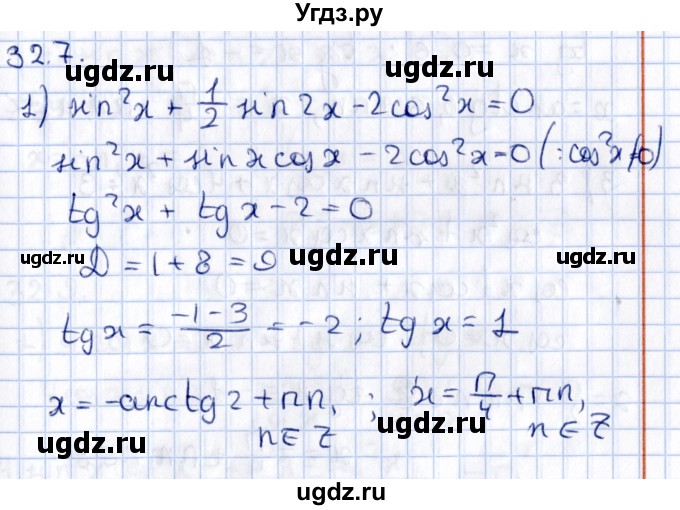 Угдз.ру
32.7.
ugdz.ru ugdz.ru
1) sin²x + 1/2 sin 2x - 2cos²x = 0
sin²x + sin x cos x - 2cos²x = 0 (: cos²x ≠ 0)
tg²x + tg x - 2 = 0
ugdz.ru Д = 1 + 8 = 9 ugdz.ru ugdz.ru
tg x = (-1-3)/2 = -2; tg x = 1
x = -arctg 2 + πn, ; x = π/4 + πn,
n ∈ Z n ∈ Z
ugdz.ru ugdz.ru
ugdz.ru